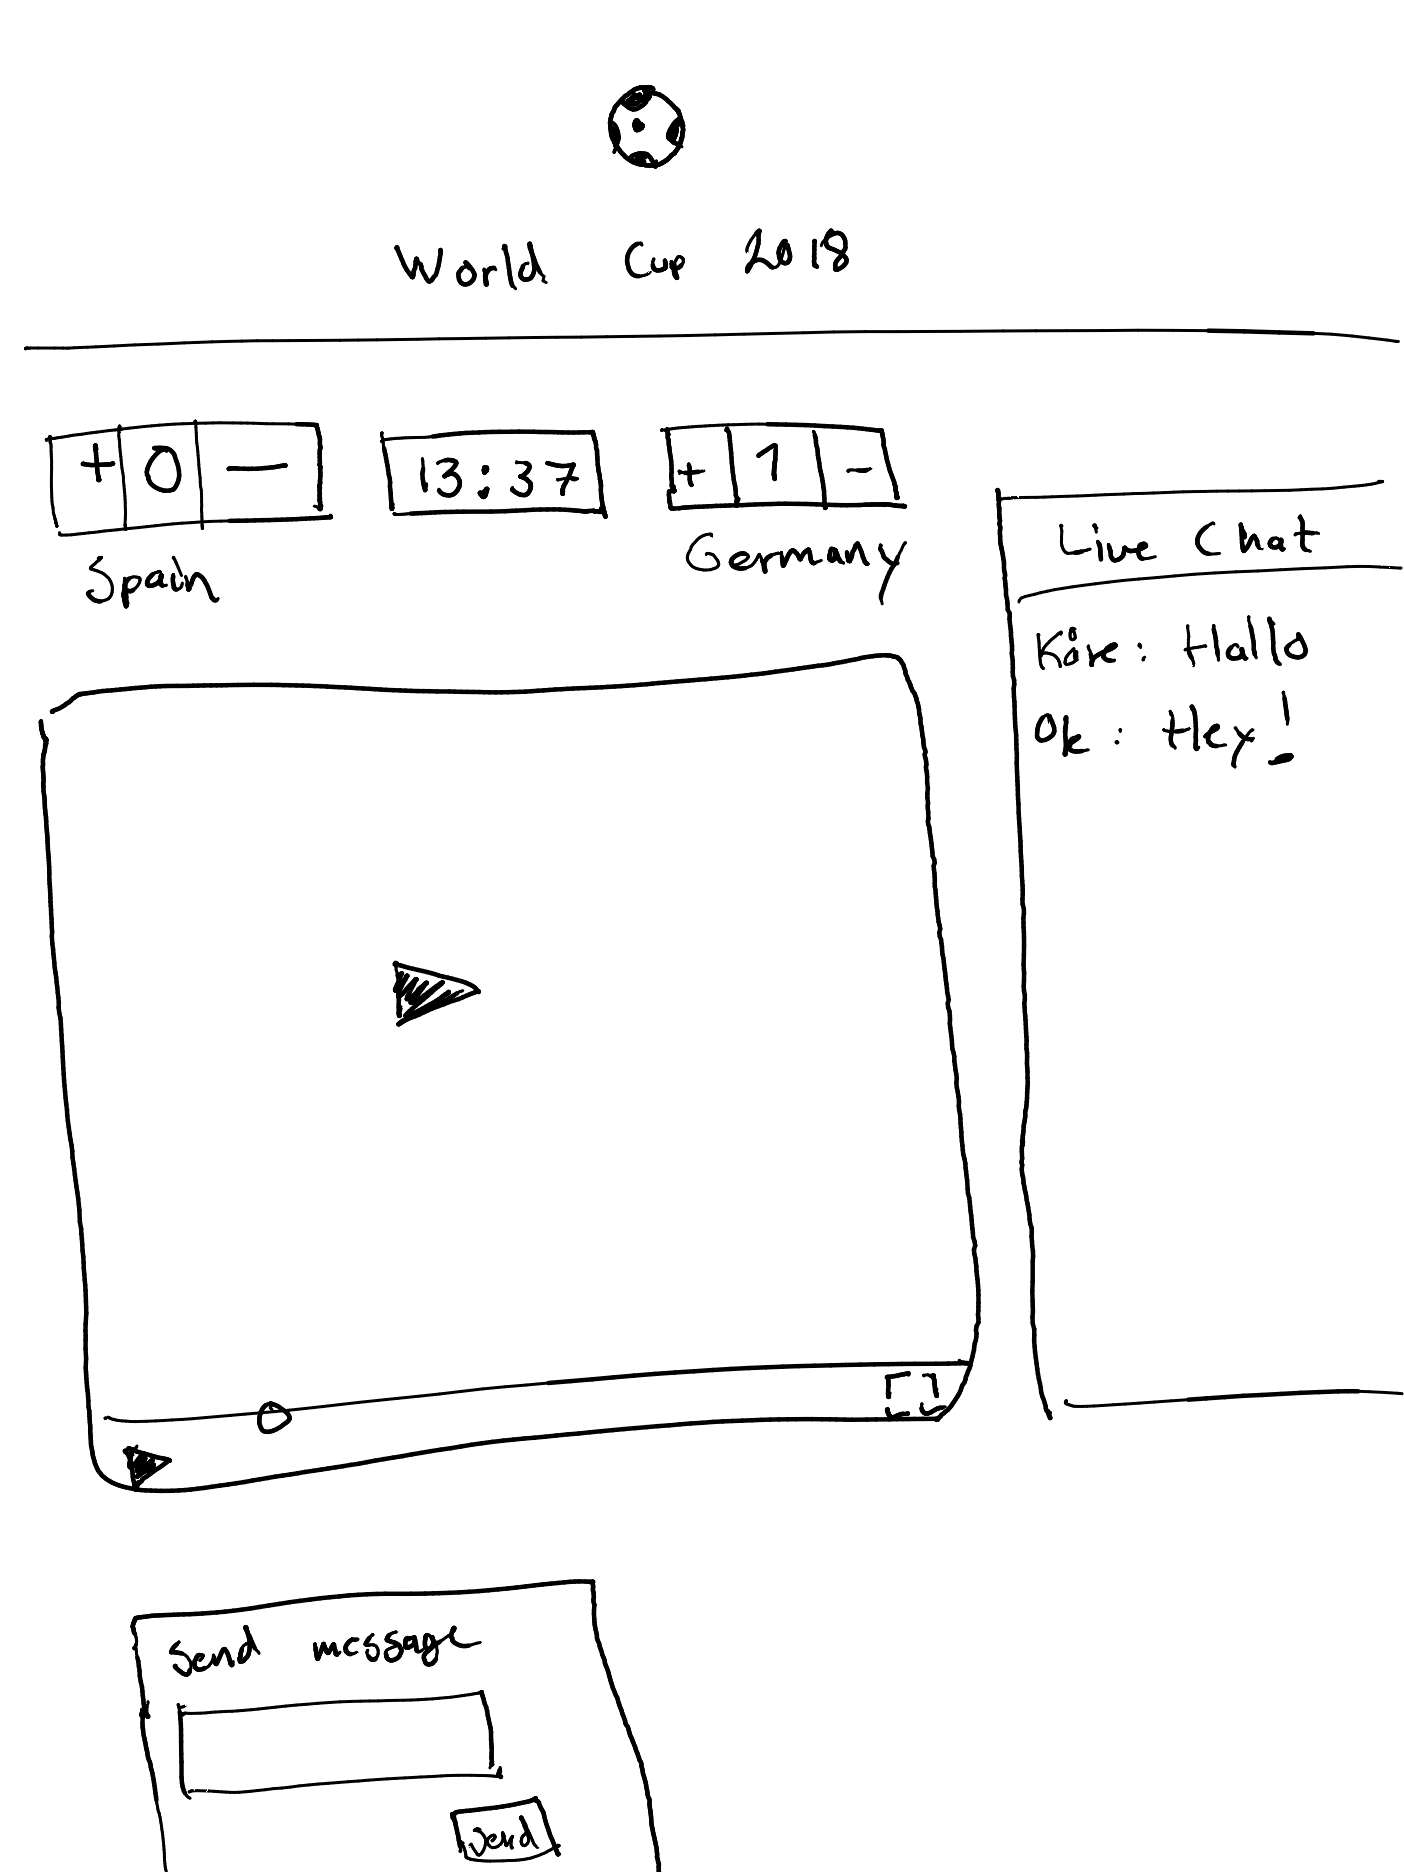 World Cup 2018
+ 0 − 13:37 + 1 −
Spain Germany
Live Chat
Kåre: Hallo
Ok: Hey!
Send message
Send